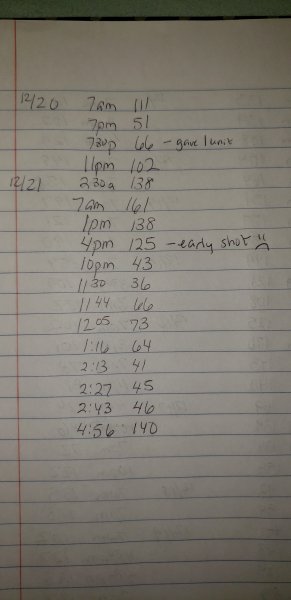 12/20 7am 111
7pm 51
730p 66 - gave 1 unit
11pm 102
12/21 230a 138
7am 161
1pm 138
4pm 125 - early shot ☹
10pm 43
1130 36
1144 66
1205 73
1:16 64
2:13 41
2:27 45
2:43 46
4:56 140